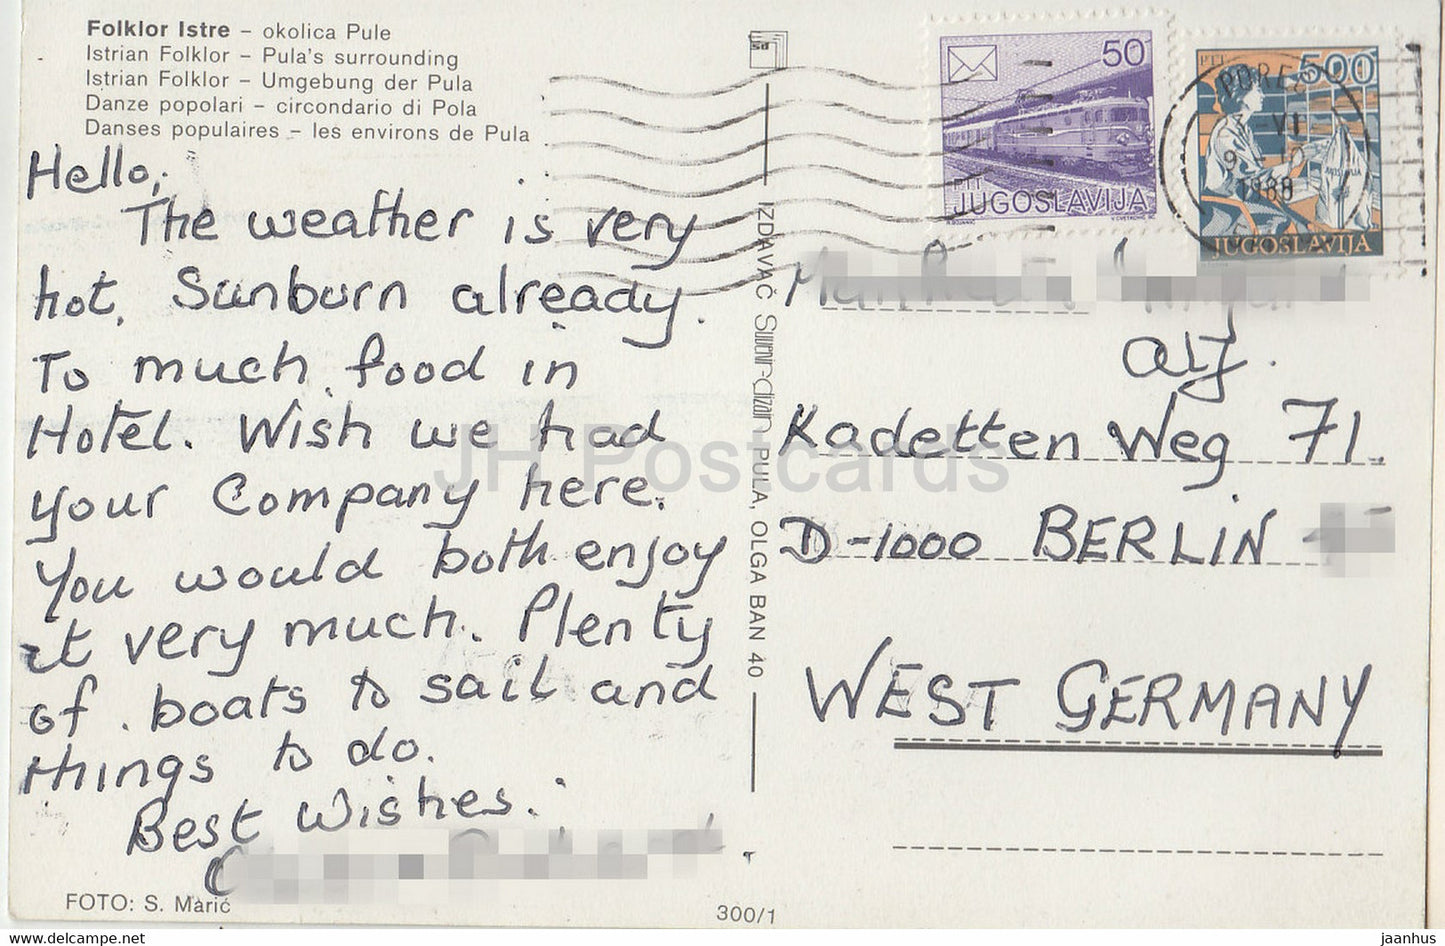 Folklor Istre – okolica Pule
Istrian Folklor – Pula's surrounding
Istrian Folklor – Umgebung der Pula
Danze popolari – circondario di Pola
Danses populaires – les environs de Pula
Hello,
The weather is very
hot. Sunburn already.
To much food in
Hotel. Wish we had
your Company here.
You would both enjoy
it very much. Plenty
of boats to sail and
things to do.
Best Wishes.
FOTO: S. Marić
300/1
IZDAVAČ Suvenir-dizajn PULA, OLGA BAN 40
sd
50
PTT
JUGOSLAVIJA
PTT 500
JUGOSLAVIJA
POREČ
VI
9 10
1988
Kadetten Weg 71.
D-1000 BERLIN
WEST GERMANY
JH Postcards
www.delcampe.net
jaanhus